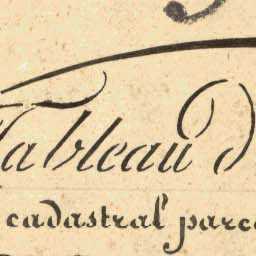 Tableau d
cadastral parc